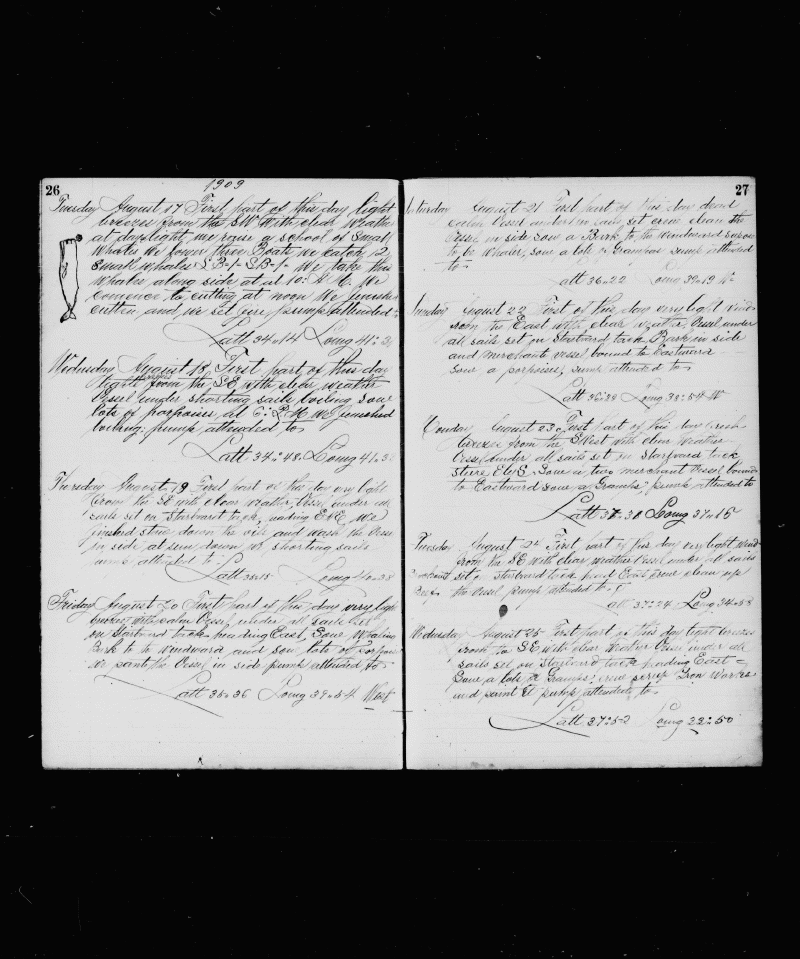 26
1909
Tuesday August 17 First part of this day light
breezes from the SW With clear Weather
at day light, we raise a school of Small
Whales We lower three Boats we catch 2
Small whales S.B-1- L.B-1- We take the
Whales along side at at 10: A M. We
comence to cutting at noon We finish
cutten, and we set fire pump attended to
Latt 34"14 Long 41"3
Wednesday August 18, First part of this day
light breezes from the SE With clear weather
Vessel under shorting sails boiling saw
lots of porpoises, at 6: P.M We finished
boiling: pump attended to
Latt 34"48 Long 41"3
Thursday August 19 First part of this day very light
from the SE with clear weather, Vessel under all
sails set on Starboard tack, heading E&E, We
finished stow down the oil and wash the Vessel
in side, at sun down We shorting sails
attended to
Latt 35"15 Long 40"28
Friday August 20 First part of this day very light
breezes with calm Vessel under all sails set
on Starboard tack heading East, Saw Whaling
Bark to to windward and saw lots of porpoises
We paint the Vessel in side pump attended to
Latt 35"36 Long 39"54 West
27
Saturday August 21 First part of this day dead
calm Vessel under all sails set crew clean the
Vessel in side saw a Bark to the windward
to be Whaler, saw a lots of Grampus pump attended
to
Latt 36"22 Long 39"19 W
Sunday August 22 First of this day very light wind
from the East with clear weather, Vessel under
all sails set on Starboard tack Bark in side
and merchants vessel bound to Eastward
Saw a porpoises, pump attended to
Latt 36:39 Long 38:54 W
Monday August 23 First part of this day fresh
breezes from the SWest With clear Weather
Vessel under all sails set on starboard tack
steere E&S- Saw a two merchant Vessel bound
to Eastward saw a Grampus, pump attended to
Latt 37"38 Long 37"15
Tuesday August 24 First part of this day very light Wind
from the SE With clear weather Vessel under all sails
set on starboard tack head East crew clean up
the Vessel pump attended to
Latt 37:24 Long 34"53
Wednesday August 25 First part of this day light breezes
from to SE With clear Weather Vessel under all
sails set on starboard tack heading East
Saw a lots of Grampus: crew scrap Iron Works
and paint it pump attended to
Latt 37:52 Long 32:50